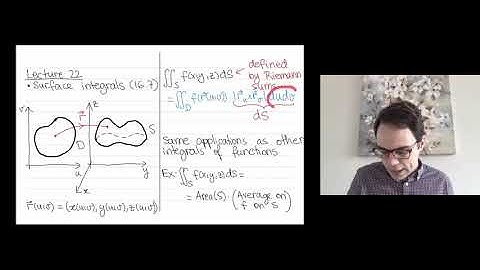 Lecture 22
• Surface integrals (16.7)
v
z
r⃗
S
D
u
x
y
r⃗(u,v) = (x(u,v), y(u,v), z(u,v))
∬_S f(x,y,z) dS
defined by Riemann sums
= ∬_D f(r⃗(u,v)) |r⃗_u × r⃗_v| du dv
dS
Same applications as other
integrals of functions.
Ex: ∬_S f(x,y,z) dS =
= Area(S) · (Average of
f on S)